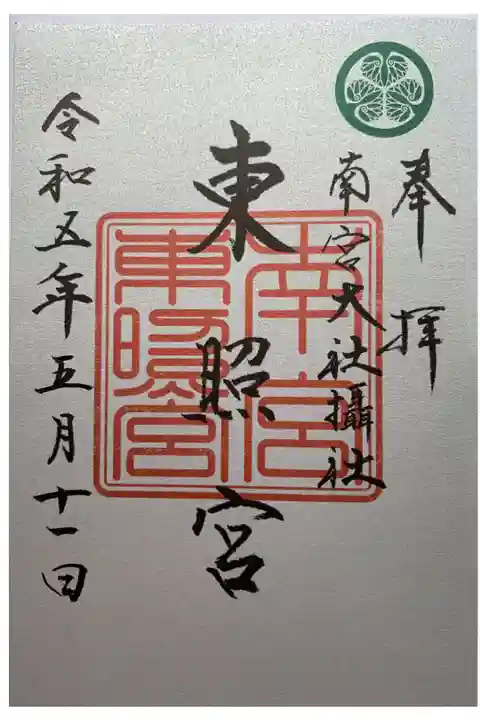 奉拝
南宮大社攝社
東照宮
南宮
東照宮
令和五年五月十一日